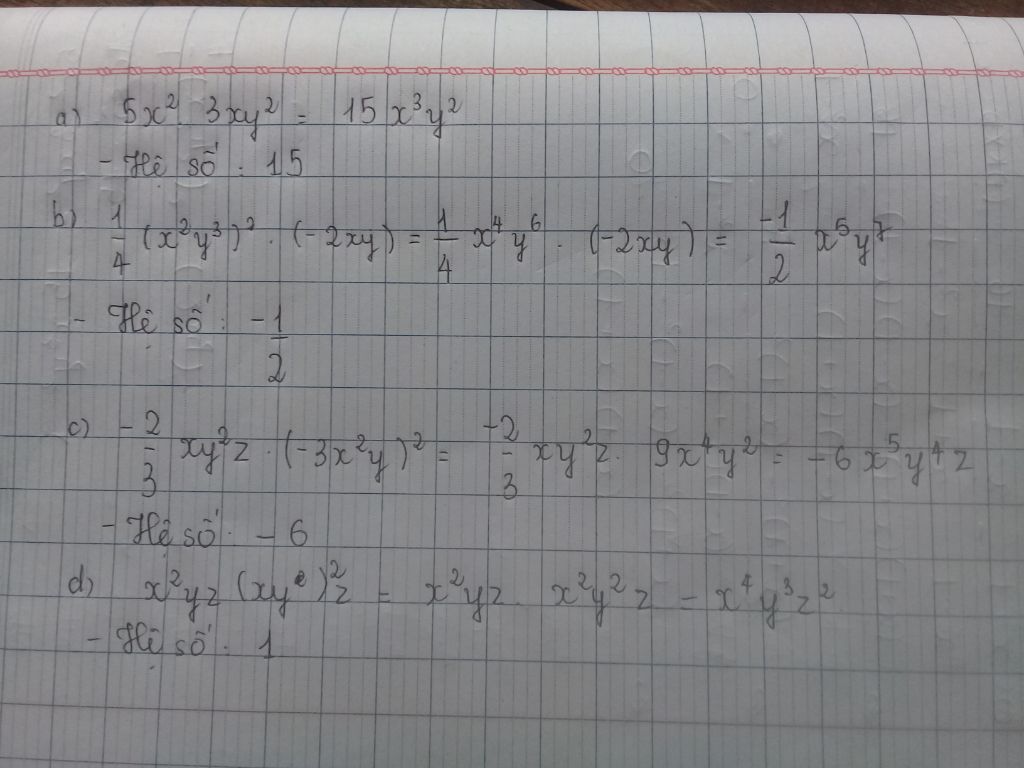 a) 5x². 3xy² = 15x³y²
- Hệ số : 15
b) 1/4 (x²y³)² . (-2xy) = 1/4 x⁴y⁶ . (-2xy) = -1/2 x⁵y⁷
- Hệ số : -1/2
c) -2/3 xy²z . (-3x²y)² = -2/3 xy²z . 9x⁴y² = -6x⁵y⁴z
- Hệ số : -6
d) x²yz (xy)²z = x²yz . x²y²z = x⁴y³z²
- Hệ số : 1